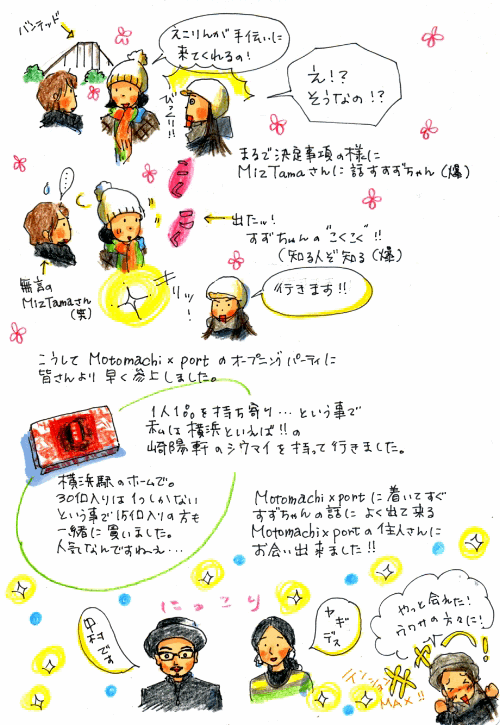 バンデッド
えこりんが手伝いに
来てくれるの!
え!?
そうなの!?
びっくり!!
まるで決定事項の様に
MizTamaさんに話すすずちゃん(爆)
こく
こく
出たッ!
すずちゃんの"こくこく"!!
(知る人ぞ知る(爆)
無言の
MizTamaさん
(笑)
キリッ!
行きます!!
こうして Motomachi×port のオープニングパーティに
皆さんより早く参上しました。
1人1品を持ち寄り…という事で
私は横浜といえば!!の
崎陽軒のシウマイを持って行きました。
横浜駅のホームで。
30個入りは1つしかない
という事で15個入りの方も
一緒に買いました。
人気なんですねーえ…
Motomachi×portに着いてすぐ
すずちゃんの話によく出て来る
Motomachi×portの住人さんに
お会い出来ました!!
にっこり
中村です
ヤギデス
やっと会えた!
ウワサの方々に!
キャー!
テンション
MAX!!